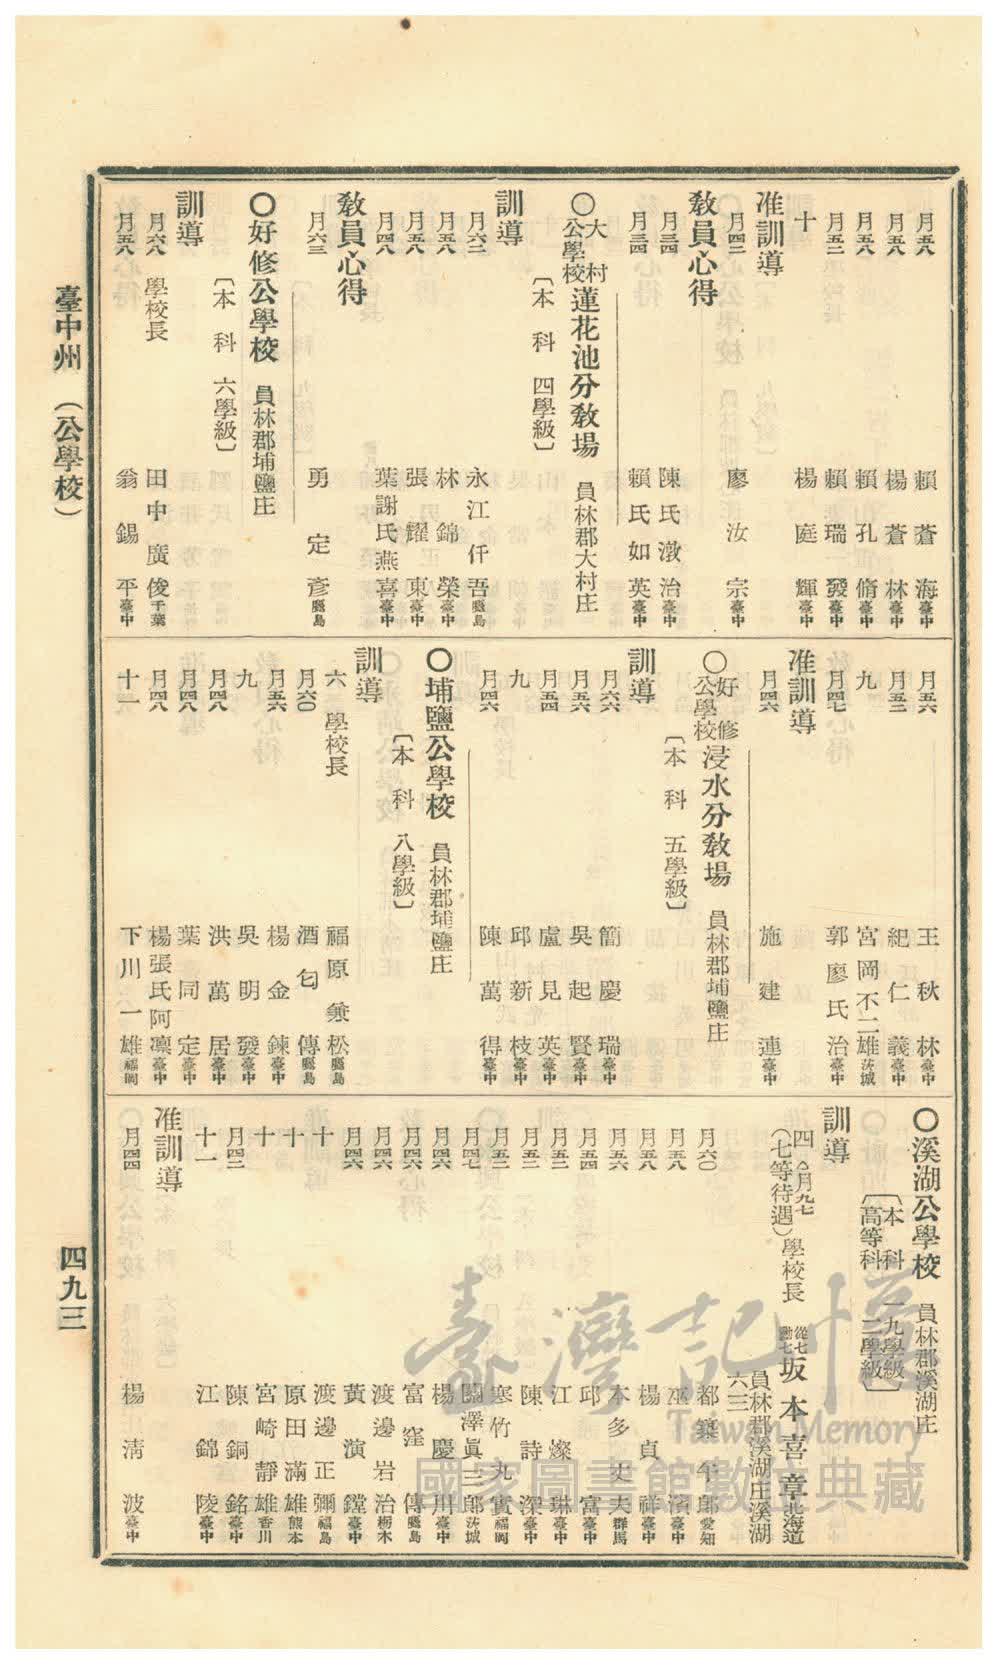 月五八 賴蒼海臺中
月五八 楊蒼林臺中
月五八 賴孔脩臺中
月五二 賴瑞發臺中
十 楊庭輝臺中
准訓導
月四二 廖汝宗臺中
敎員心得
月三四 陳氏澂治臺中
月三四 賴氏如英臺中
〇大村公學校蓮花池分敎場 員林郡大村庄
〔本科 四學級〕
訓導
月六二 永江仟吾廳島
月五八 林錦榮臺中
月五八 張耀東臺中
月四八 葉謝氏燕喜臺中
敎員心得
月六三 勇定彥廳島
〇好修公學校 員林郡埔鹽庄
〔本科 六學級〕
訓導
月六八 學校長 田中廣俊千葉
月五八 翁錫平臺中
月五六 王秋林臺中
月五二 紀仁義臺中
九 宮岡不二雄茨城
月四七 郭廖氏治臺中
准訓導
月四六 施建連臺中
〇好修公學校浸水分敎場 員林郡埔鹽庄
〔本科 五學級〕
訓導
月六六 簡慶瑞臺中
月五六 吳起賢臺中
月五四 盧見英臺中
九 邱新枝臺中
月四六 陳萬得臺中
〇埔鹽公學校 員林郡埔鹽庄
〔本科 八學級〕
訓導
六 學校長 福原兼松廳島
月六〇 酒匂傳廳島
月五六 楊金鍊臺中
九 吳明發臺中
月四八 洪萬居臺中
月四八 葉同定臺中
月四八 楊張氏阿凛臺中
十一 下川一雄福岡
〇溪湖公學校 員林郡溪湖庄
〔本科 一九學級
高等科 二學級〕
訓導
四 〇月九七
(七等待遇) 學校長 從七勳七 坂本喜章北海道
員林郡溪湖庄溪湖六三
月六〇 都築年郎愛知
月五八 巫濱臺中
月五八 楊貞祥臺中
月五六 本多丈夫群馬
月五四 邱富臺中
月五二 江燦琳臺中
月五二 陳詩深臺中
月五二 寒竹丸實福岡
月四七 關澤眞三郎茨城
月四六 楊慶川臺中
月四六 富窪傳廳島
月四六 渡邊岩治栃木
月四六 黃演鏜臺中
十 渡邊正彌福島
十 原田滿雄熊本
十 宮崎靜雄香川
月四二 陳銅銘臺中
十一 江錦陵臺中
准訓導
月四四 楊淸波臺中
臺中州 (公學校)
四九三
臺灣記憶
Taiwan Memory
國家圖書館數位典藏